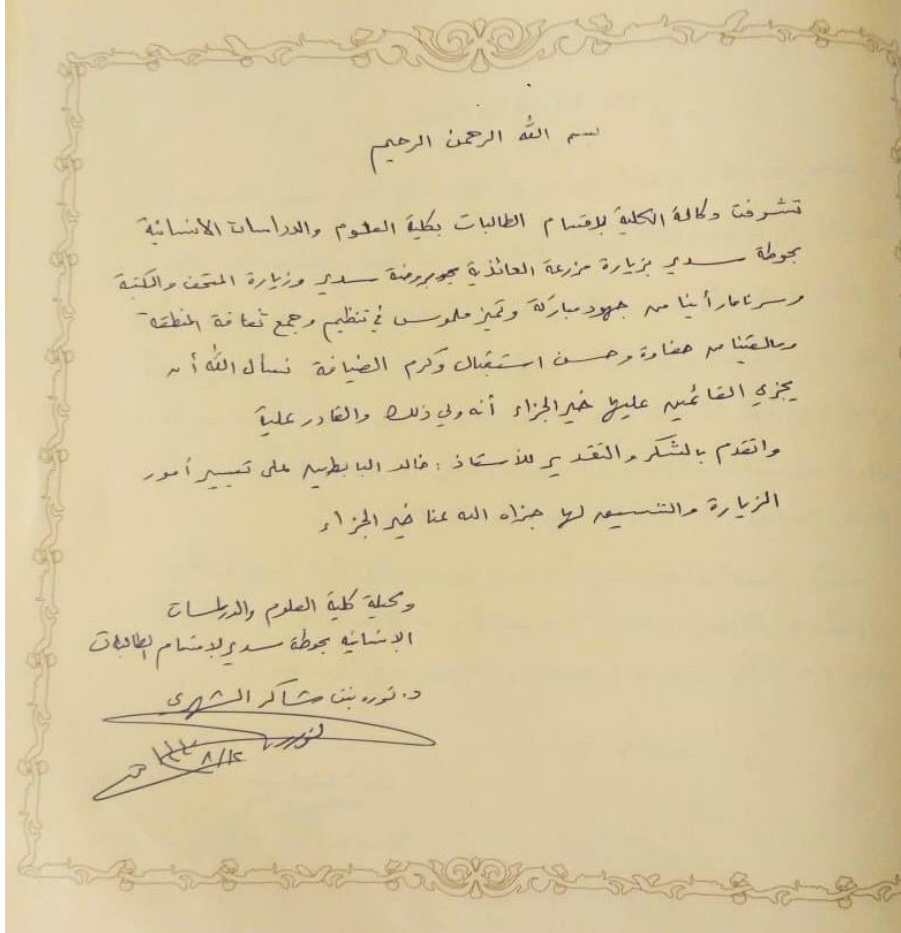 بسم الله الرحمن الرحيم
تشرفت وكالة الكلية لاقسام الطالبات بكلية العلوم والدراسات الانسانية
بحوطة سدير بزيارة مزرعة العائذية بجوبروضة سدير وزيارة المتحف والمكتبة
وسرنا مارأينا من جهود مباركة وتميز ملموس في تنظيم وجمع ثقافة المنطقة
ومالقينا من حفاوة وحسن استقبال وكرم الضيافة نسأل الله أن
يجزي القائمين عليها خير الجزاء أنه ولي ذلك والقادر علية
واتقدم بالشكر والتقدير للأستاذ : خالد البابطين على تيسير أمور
الزيارة والتنسيق لها جزاه الله عنا خير الجزاء
وكيلة كلية العلوم والدراسات
الانسانيه بحوطة سدير لاقسام الطالبات
د. نوره بنت شاكر الشهري
نوره